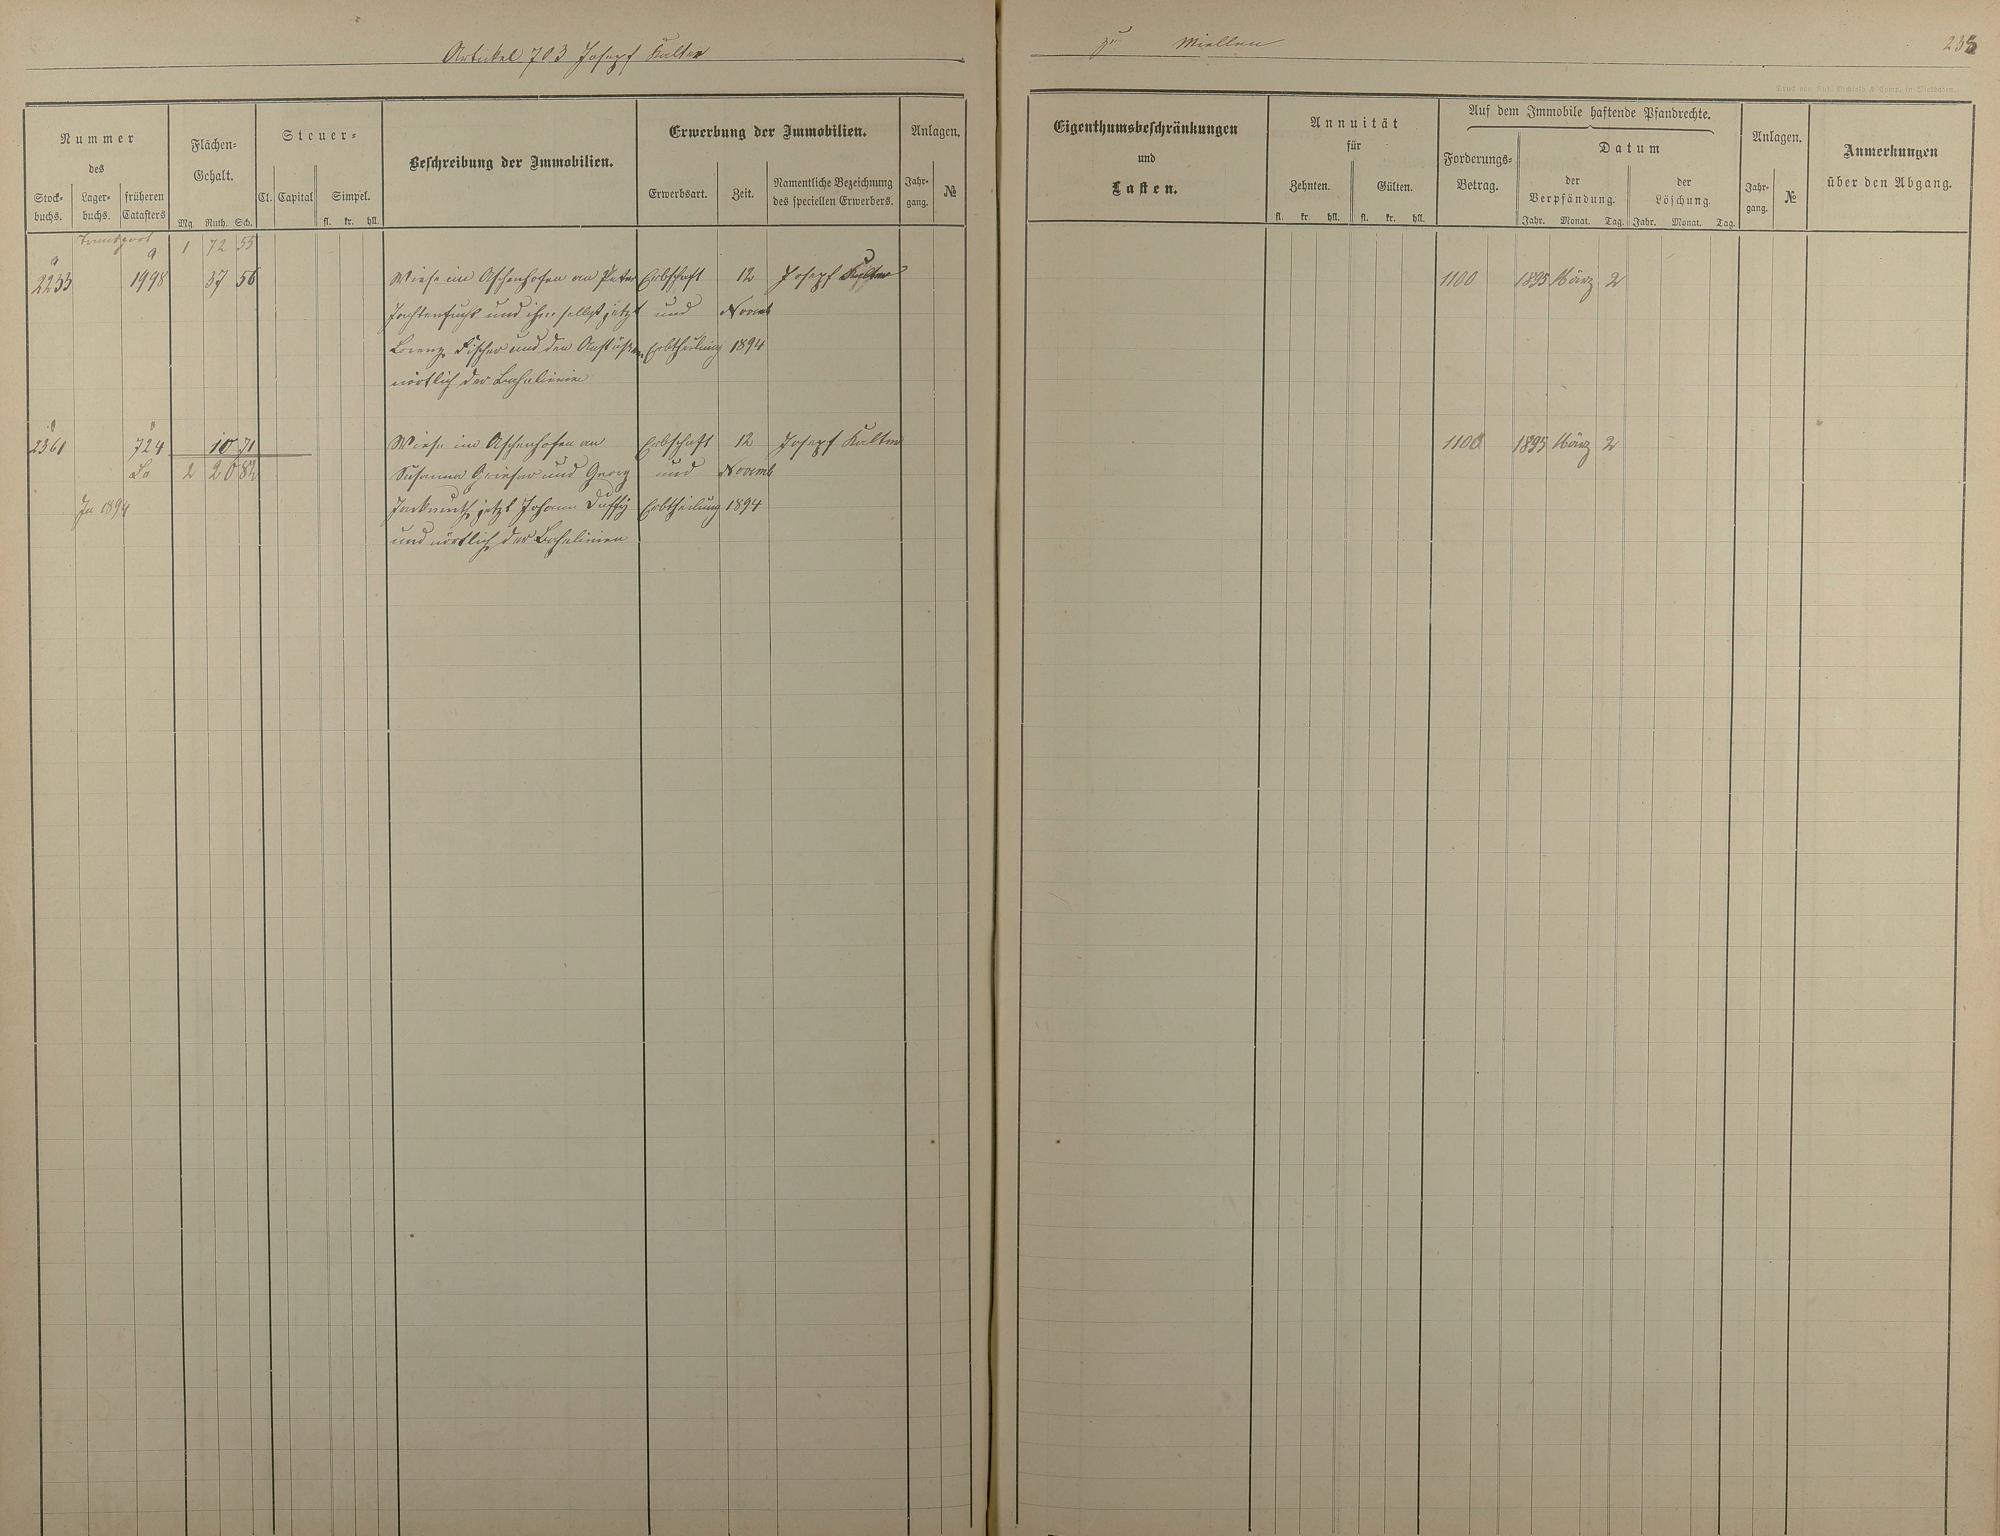 Artikel 703 Josepf Kalter
zu Miellen
235
Druck von Rud. Bechtold & Comp. in Wiesbaden.
Nummer
des
Stock-
buchs.
Lager-
buchs.
früheren
Catasters
Flächen-
Gehalt.
Mg. Ruth. Sch.
Steuer-
Cl. Capital Simpel.
fl. kr. hll.
Beschreibung der Immobilien.
Erwerbung der Immobilien.
Erwerbsart. Zeit.
Namentliche Bezeichnung
des speciellen Erwerbers.
Anlagen.
Jahr-
gang.
№
Eigenthumsbeschränkungen
und
Lasten.
Annuität
für
Zehnten. Gülten.
fl. kr. hll. fl. kr. hll.
Auf dem Immobile haftende Pfandrechte.
Forderungs-
Betrag.
Datum
der
Verpfändung.
der
Löschung.
Jahr. Monat. Tag. Jahr. Monat. Tag.
Anlagen.
Jahr-
gang.
№
Anmerkungen
über den Abgang.
Transport 1 72 55
a a
2233 1998 37 56 Wiese im Aschenhofen an Peter Erbschaft 12 Josepf Kalter 1100 1895 März 2
und ihm selbst jetzt und Novemb
Lorenz Fischer und den Anstößern Erbtheilung 1894
nörtlich der Bahnlinien
a a
2361 724 10 71 Wiese im Aschenhofen an Erbschaft 12 Josepf Kalter 1100 1895 März 2
Sa 2 20 82 Susanna Griesar und Georg und Novemb
In 1894 jetzt Johann Duffy Erbtheilung 1894
und nörtlich der Bahnlinien